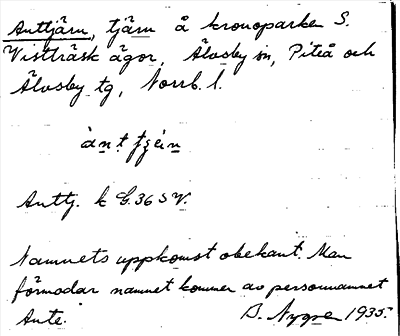 Anttjärn, tjärn å kronoparken S.
Vistträsk ägor, Älvsby sn, Piteå och
Älvsby tg, Norrb. l.
Anttj. k G. 36 S V.
Namnets uppkomst obekant. Man
förmodar namnet kommer av personnamnet
Ante. B. Nygren 1935.